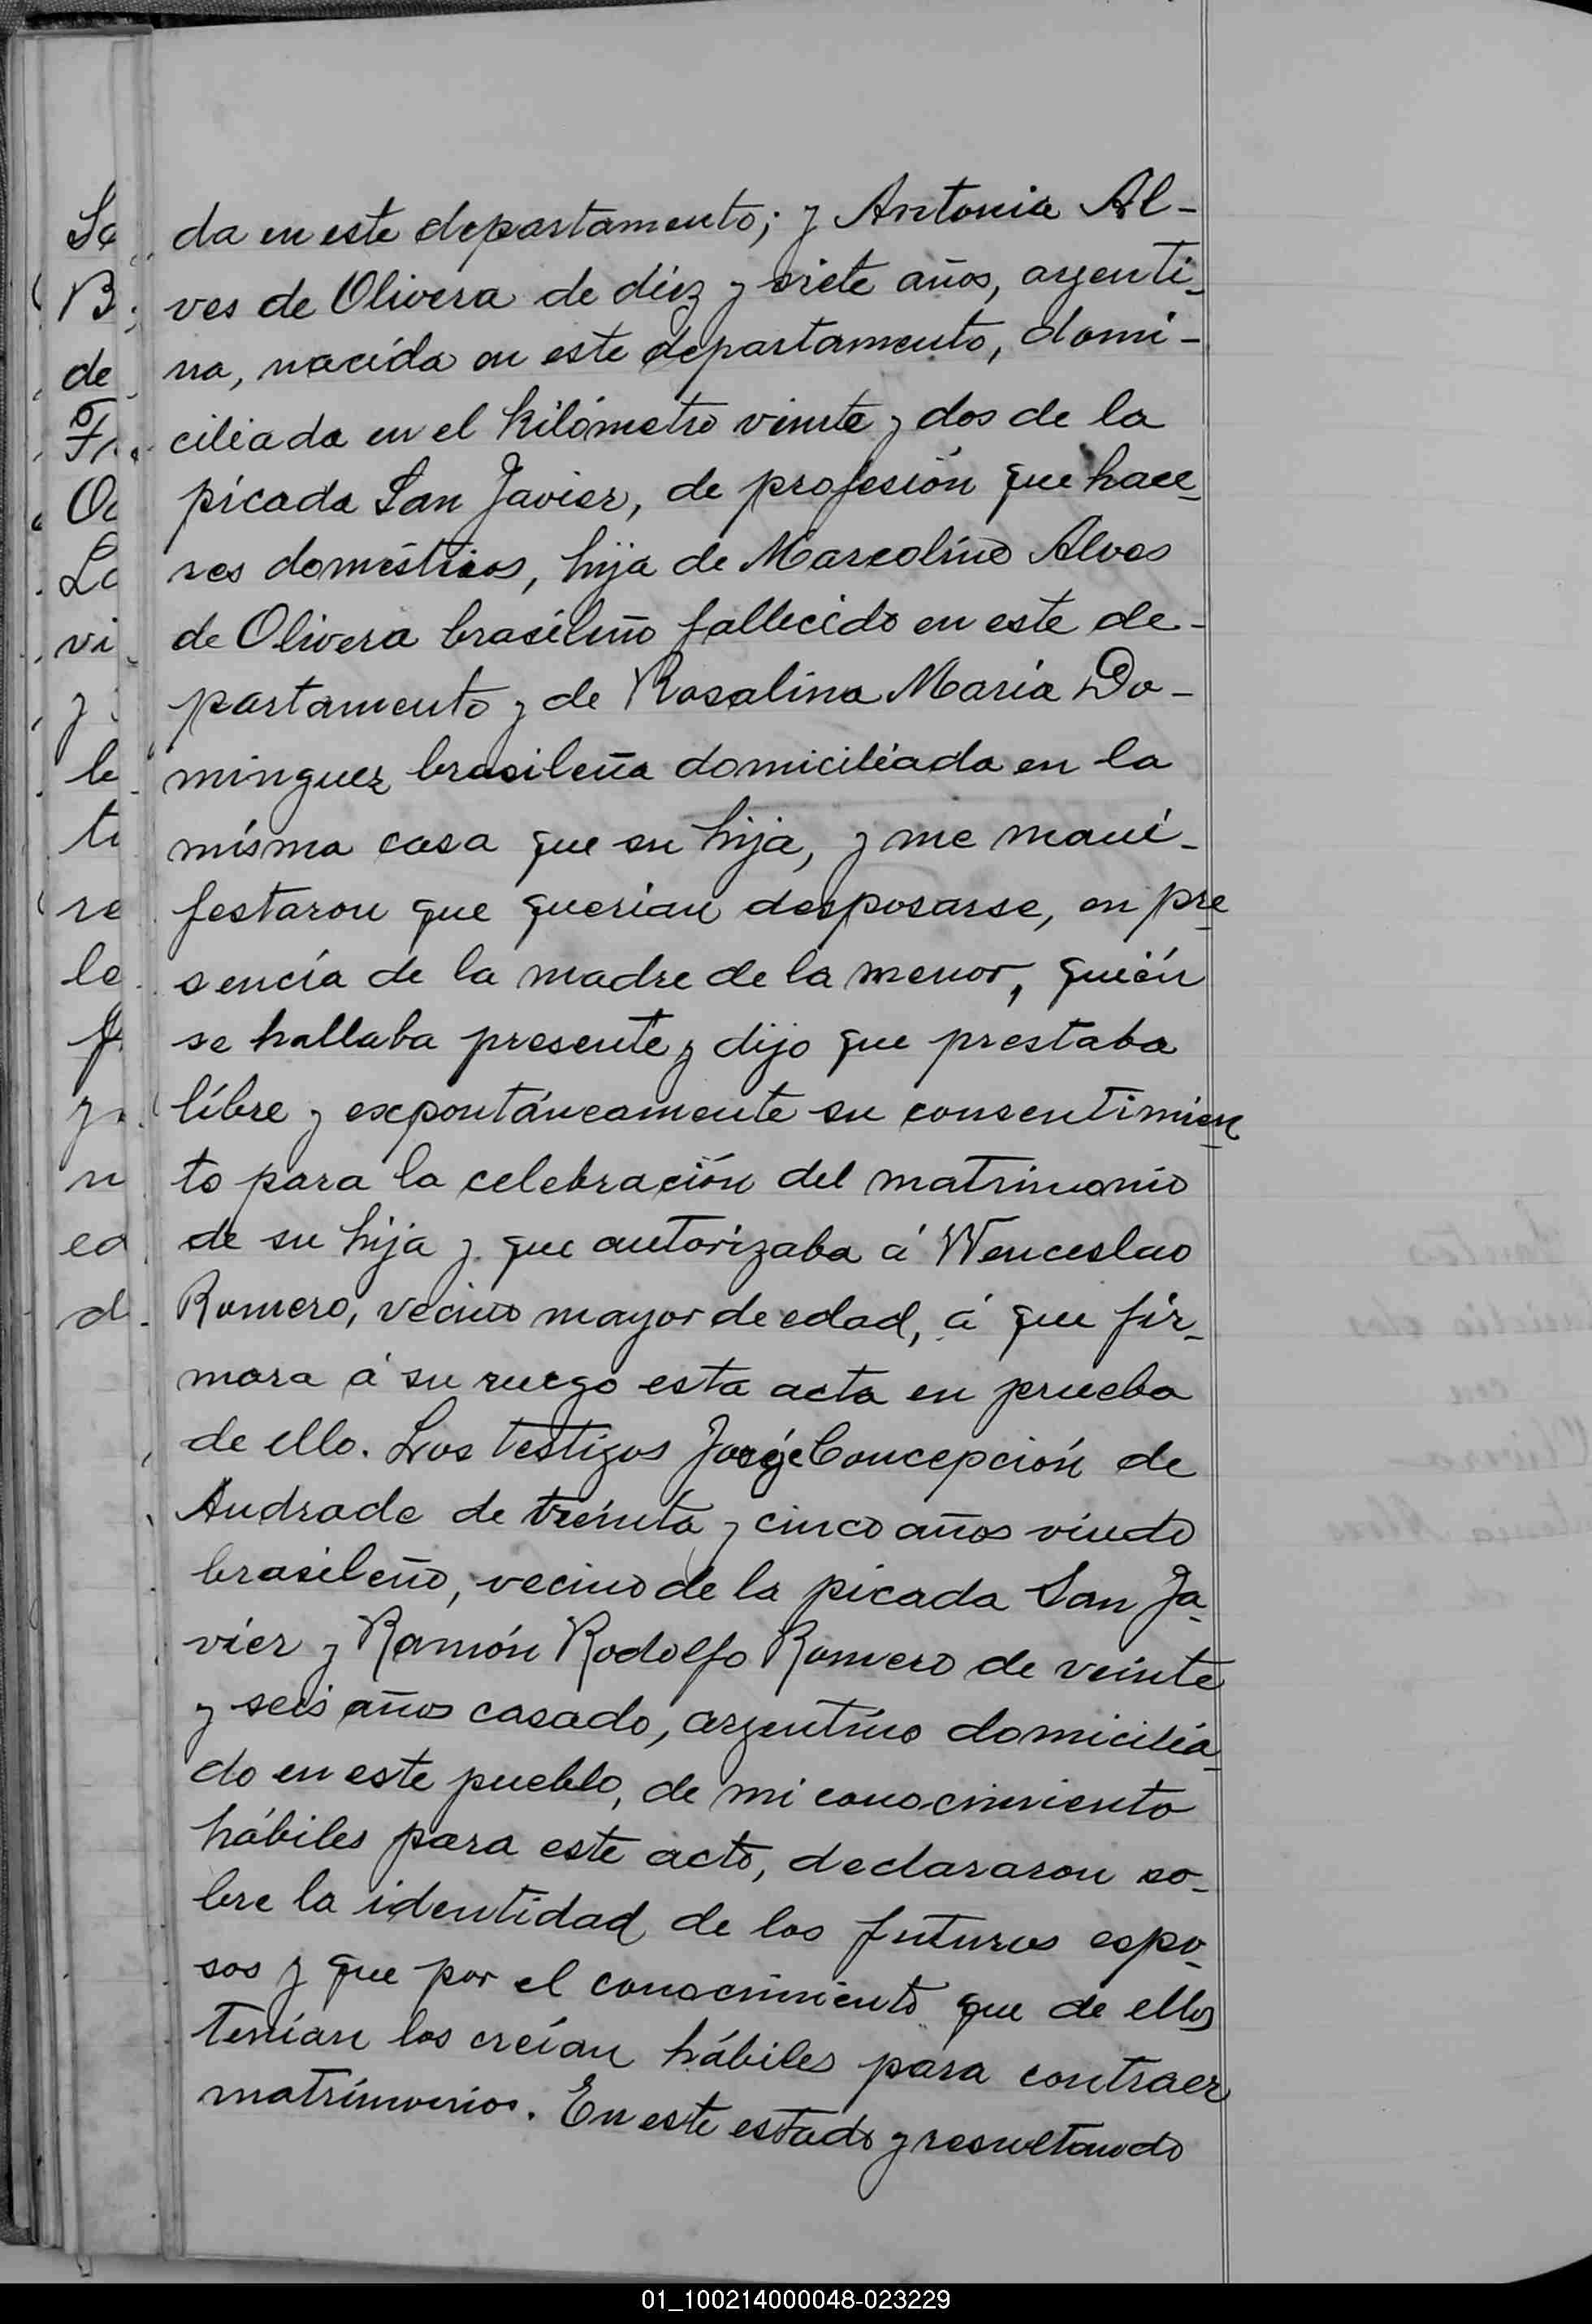 da en este departamento; y Antonia Al-
ves de Olivera de diez y siete años, argenti-
na, nacida en este departamento, domi-
ciliada en el kilómetro veinte y dos de la
picada San Javier, de profesión que hace-
res domésticos, hija de Marcolino Alves
de Olivera brasileño fallecido en este de-
partamento y de Rosalina María Do-
minguez brasileña domiciliada en la
misma casa que su hija, y me mani-
festaron que querian desposarse, en pre-
sencia de la madre de la menor, quién
se hallaba presente y dijo que prestaba
libre y expontáneamente su consentimien-
to para la celebración del matrimonio
de su hija y que autorizaba á Wenceslao
Romero, vecino mayor de edad, á que fir-
mara á su ruego esta acta en prueba
de ello. Los testigos Jorge Concepción de
Andrade de treinta y cinco años viudo
brasileño, vecino de la picada San Ja-
vier y Ramón Rodolfo Romero de veinte
y seis años casado, argentino domicilia-
do en este pueblo, de mi conocimiento
hábiles para este acto, declararon so-
bre la identidad de los futuros espo-
sos y que por el conocimiento que de ellos
tenían los creían hábiles para contraer
matrimonio. En este estado y resultando
01_100214000048-023229